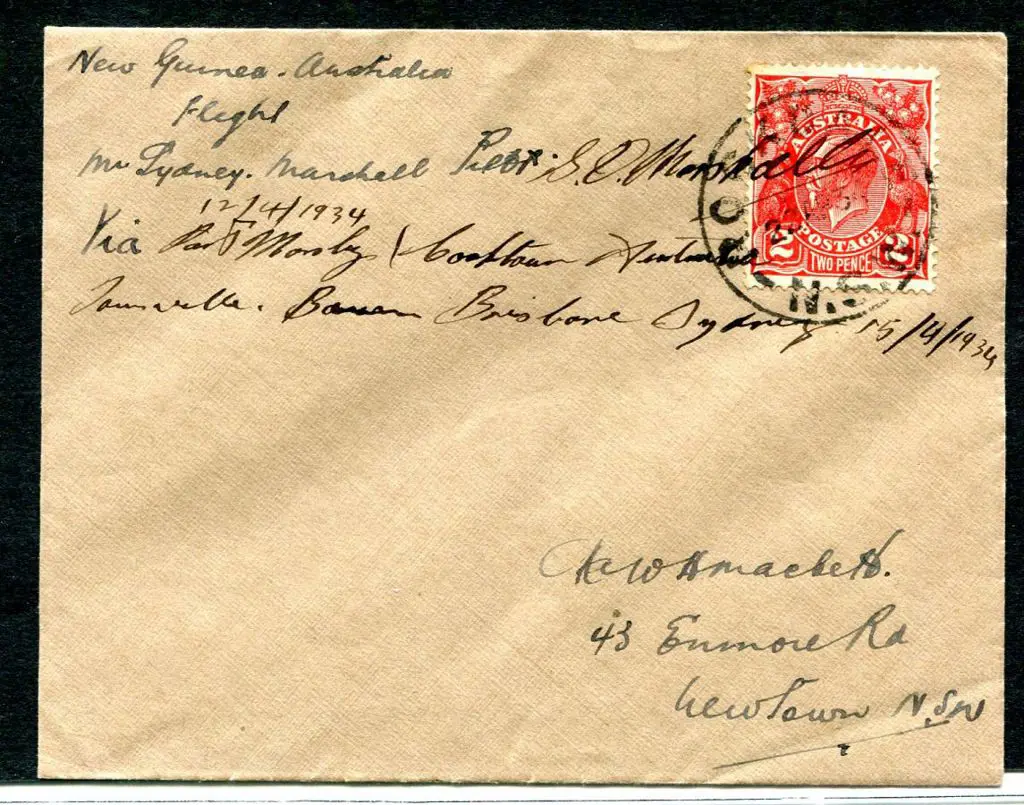 New Guinea - Australia
Flight
Mr Sydney. Marshall Pilot S. D. Marshall
12/4/1934
Via Port Morsby Cooktown Australia
Townsville. Bowen Brisbane Sydney 15/4/1934
AUSTRALIA
2 POSTAGE 2
TWO PENCE
43 Enmore Rd
Newtown N.S.W